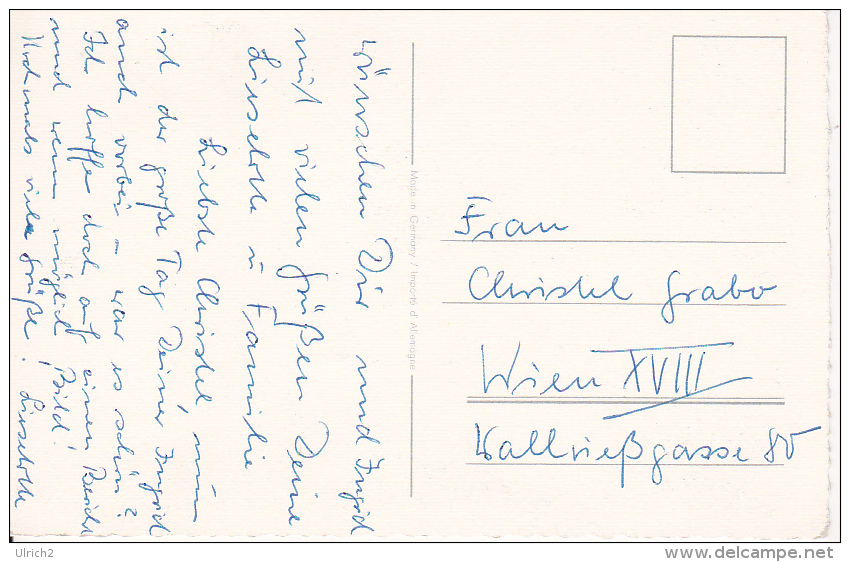 wünschen Dir und Ingrid
mit vielen Grüßen Deine
Liselotte u Familie
Liebste Christel, nun
ist der große Tag Deiner Ingrid
auch vorbei – war es schön?
Ich hoffe doch auf einen Bericht
und wenn möglich Bild!
Nochmals viele Grüße. Liselotte
Made in Germany / Importé d'Allemagne
Frau
Christel Grabo
Wien XVIII
80
Ulrich2
delcampe.net